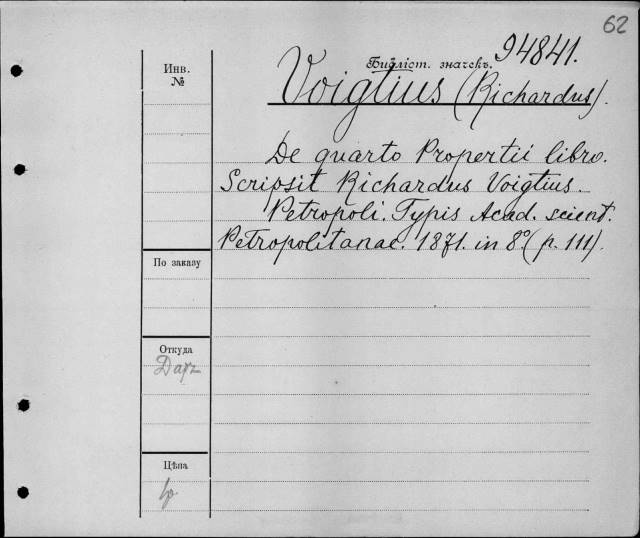 62
Библіот. значекъ. 94841.
Инв.
№
Voigtius (Richardus).
De quarto Propertii libro.
Scripsit Richardus Voigtius.
Petropoli. Typis Acad. scient.
Petropolitanae. 1871. in 8º (p. 111).
По заказу
Откуда
Даръ
Цѣна